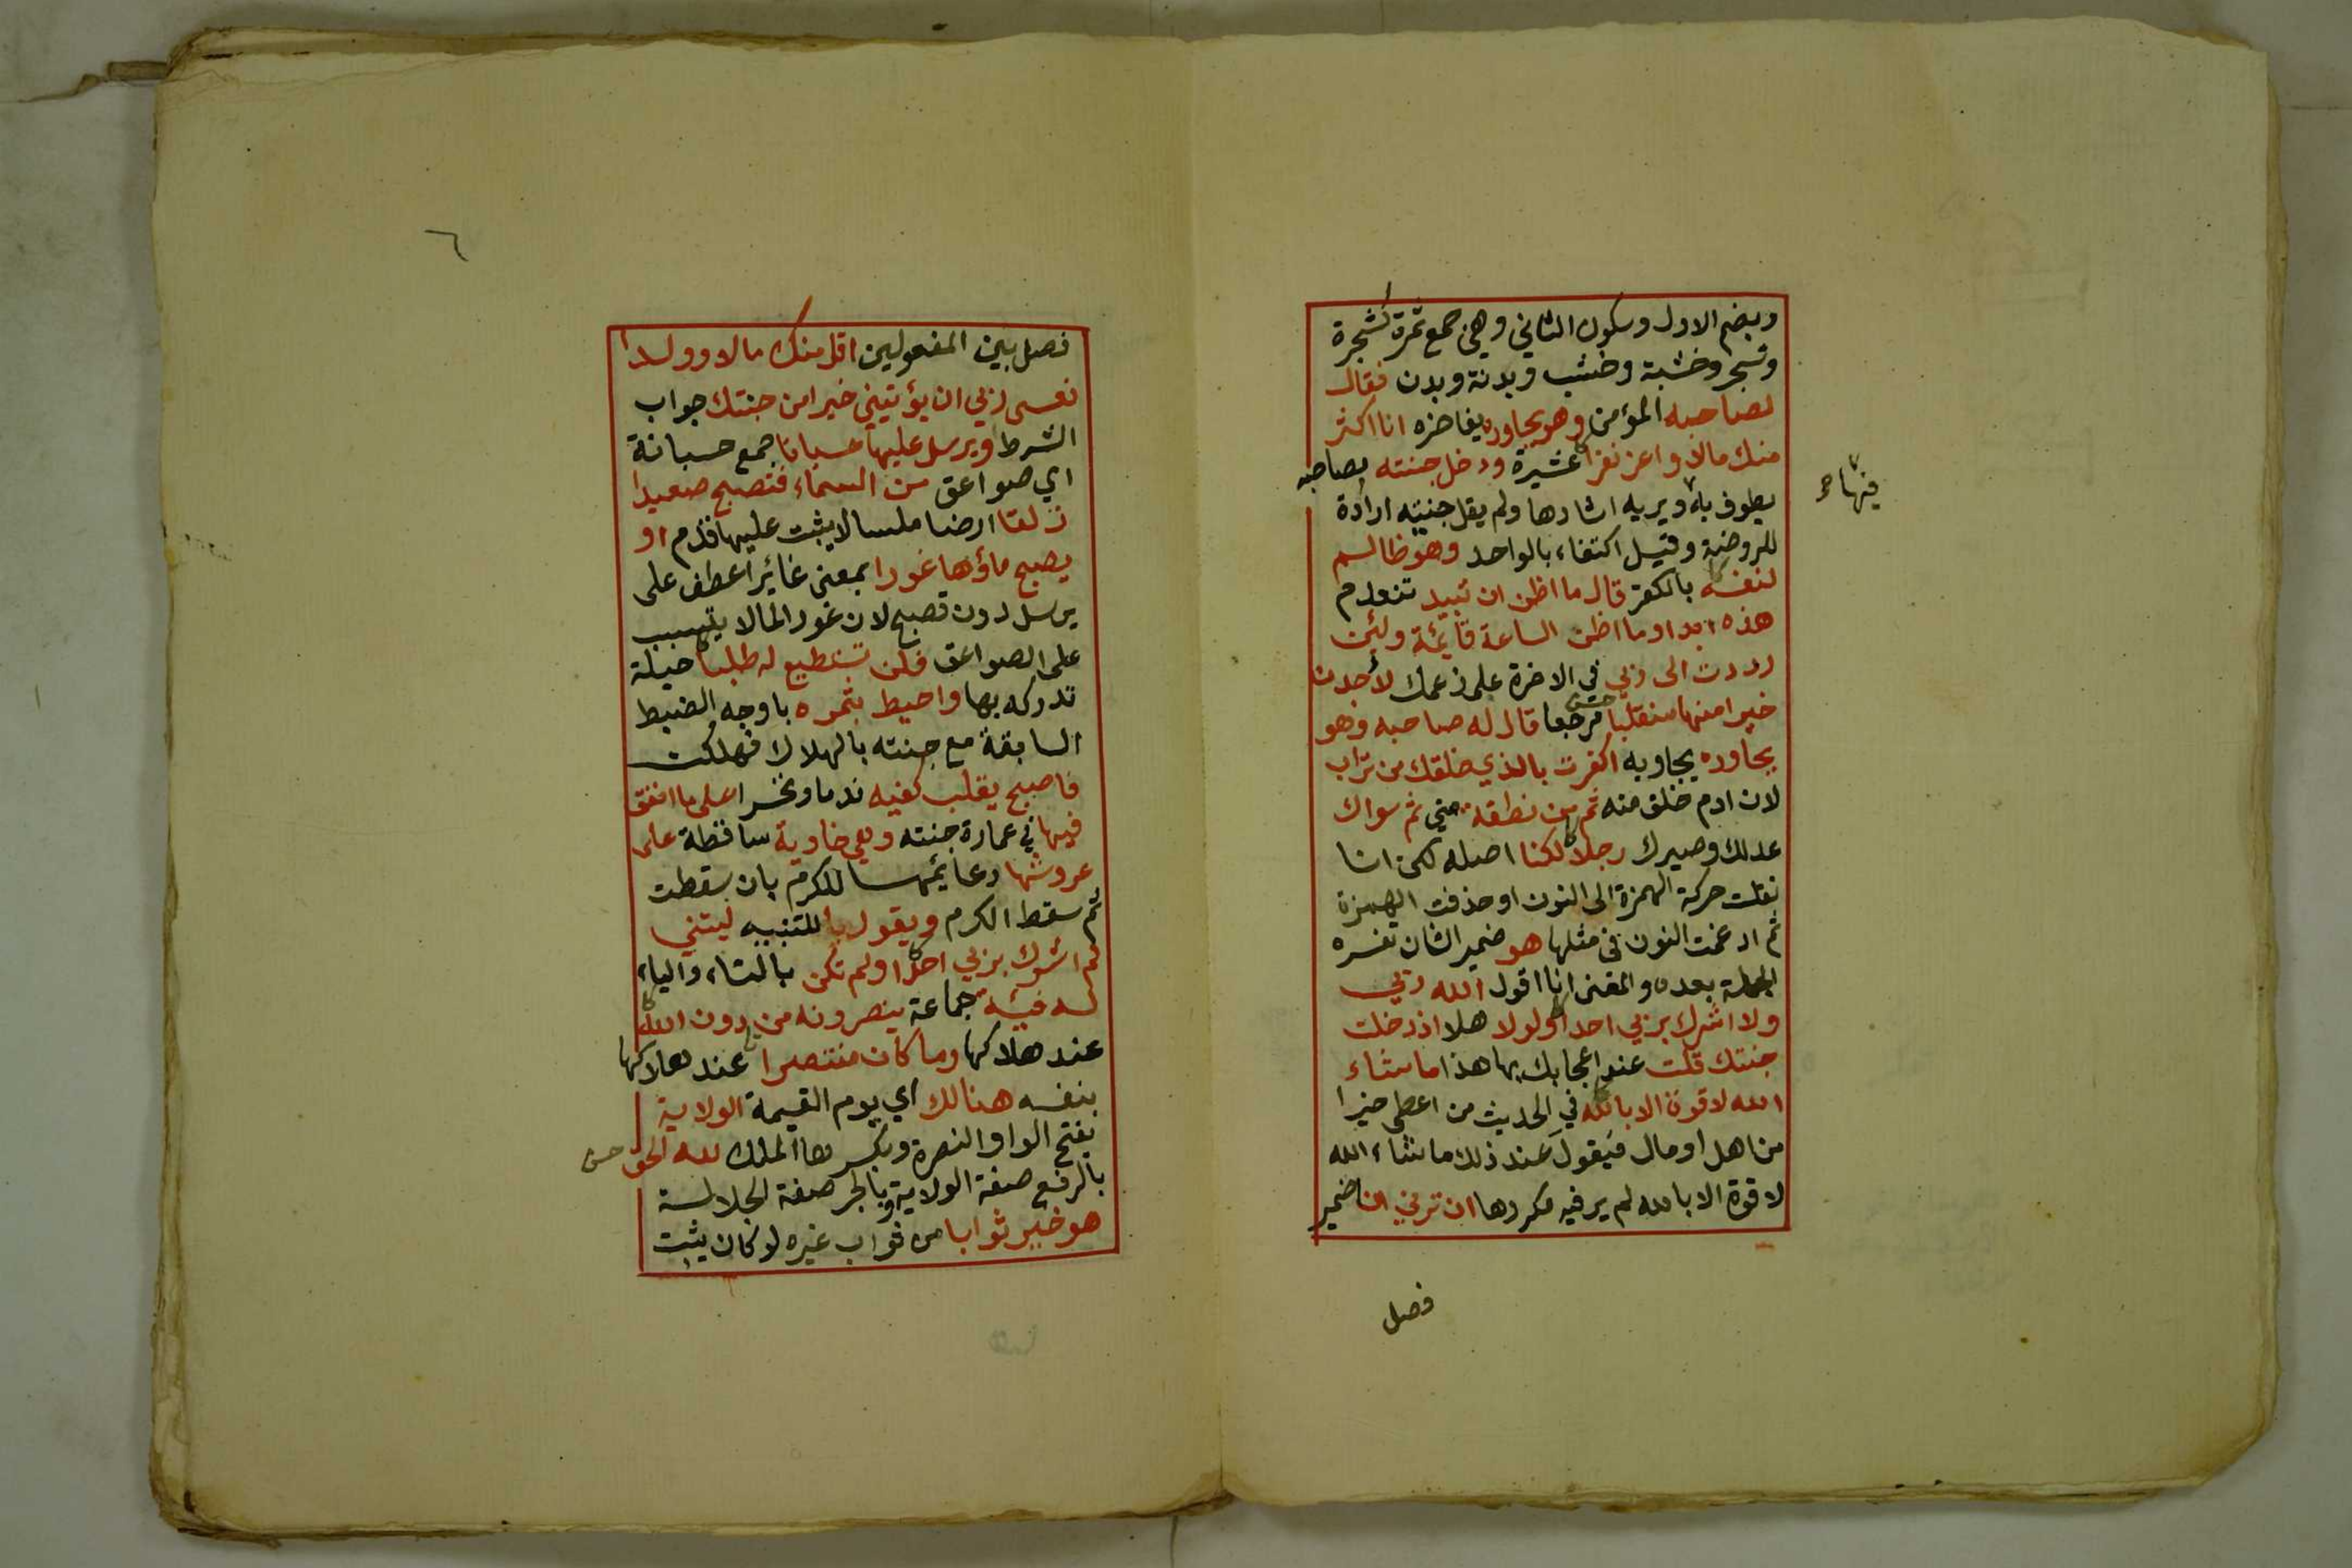 وبضم الاول وسكون الثاني وهي جمع ثمرة كشجرة
وشجر وخشبة وخشب وبدنة وبدن فقال
لصاحبه المؤمن وهو يحاوره يفاخره انا اكثر
منك مالا واعز نفرا عشيرة ودخل جنته بصاحبه
يطوف به ويريه اثارها ولم يقل جنتيه ارادة
فيها صح
للروضة وقيل اكتفاء بالواحد وهو ظالم
لنفسه بالكفر قال ما اظن ان تبيد تنعدم
هذه ابدا وما اظن الساعة قائمة ولئن
رددت الى ربي في الاخرة على زعمك لأجدن
خيرا منها منقلبا مرجعا قال له صاحبه وهو
يحاوره يجاوبه اكفرت بالذي خلقك من تراب
لان ادم خلق منه ثم من نطفة مني ثم سواك
عدلك وصيرك رجلا لكنا اصله لكن انا
نقلت حركة الهمزة الى النون او حذفت الهمزة
ثم ادغمت النون في مثلها هو ضمير الشان تفسره
الجملة بعده والمعنى انا اقول الله ربي
ولا اشرك بربي احدا ولولا هلا اذ دخلت
جنتك قلت عند اعجابك بها هذا ما شاء
الله لا قوة الا بالله في الحديث من اعطي خيرا
من اهل او مال فيقول عند ذلك ما شاء الله
لا قوة الا بالله لم ير فيه مكروها ان ترني انا ضمير
فصل
٦
فصل بين المفعولين اقل منك مالا وولدا
فعسى ربي ان يؤتيني خيرا من جنتك جواب
الشرط ويرسل عليها حسبانا جمع حسبانة
اي صواعق من السماء فتصبح صعيدا
زلقا ارضا ملسا لا يثبت عليها قدم او
يصبح ماؤها غورا بمعنى غائرا عطف على
يرسل دون تصبح لان غور الما لا يتسبب
على الصواعق فلن تستطيع له طلبا حيلة
تدركه بها واحيط بثمره باوجه الضبط
السابقة مع جنته بالهلاك فهلكت
فاصبح يقلب كفيه ندما وتحسرا على ما انفق
فيها في عمارة جنته وهي خاوية ساقطة على
عروشها دعائمها للكرم بان سقطت
ثم سقط الكرم ويقول يا للتنبيه ليتني
لم اشرك بربي احدا ولم تكن بالتاء والياء
له فئة جماعة ينصرونه من دون الله
عند هلاكها وما كان منتصرا عند هلاكها
بنفسه هنالك اي يوم القيمة الولاية
بفتح الواو النصرة وبكسرها الملك لله الحق
بالرفع صفة الولاية وبالجر صفة الجلالة
هو خير ثوابا من ثواب غيره لو كان يثبت